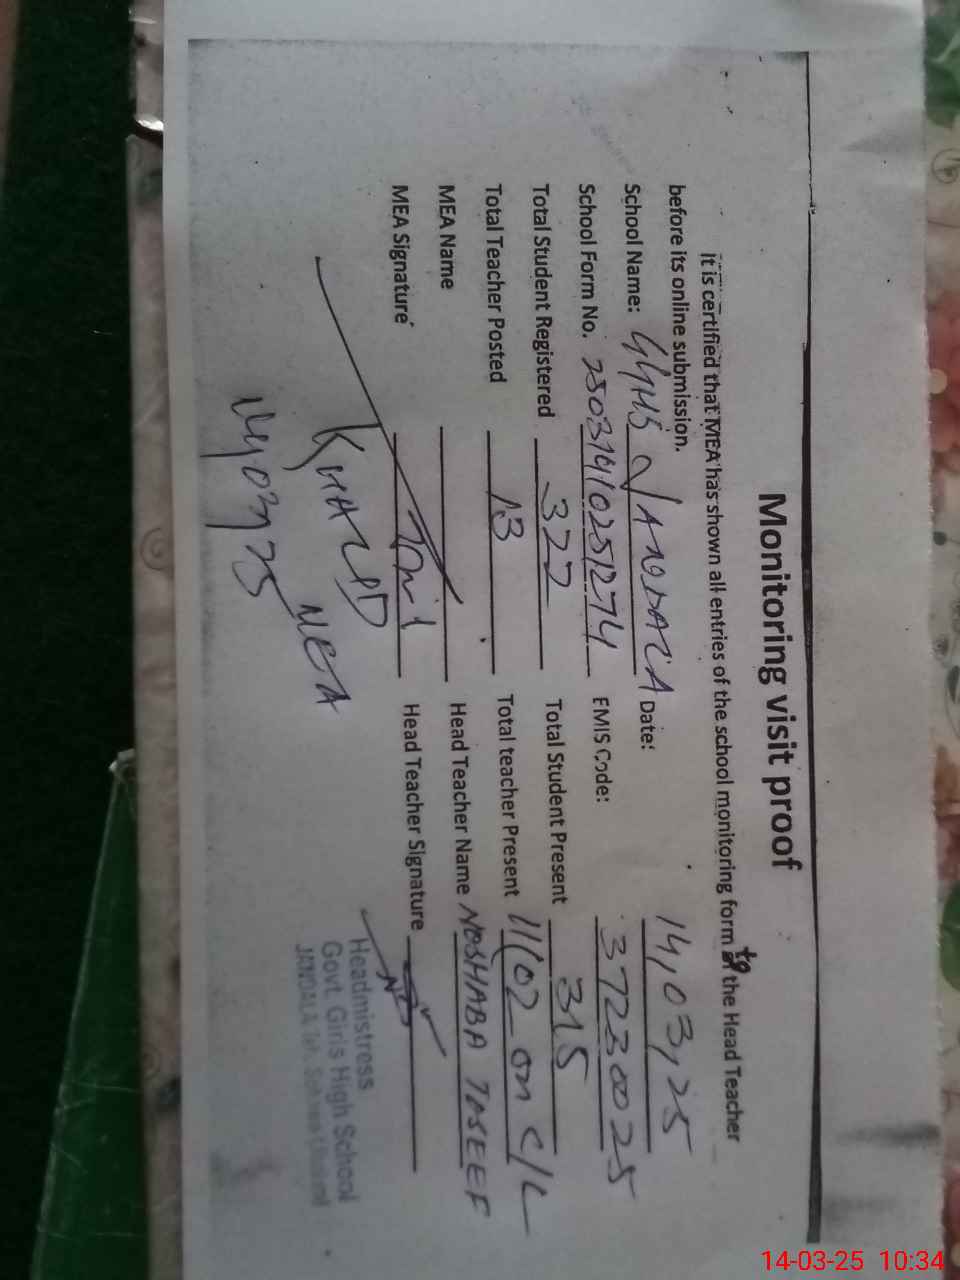 Monitoring visit proof
It is certified that MEA has shown all entries of the school monitoring form to the Head Teacher
before its online submission.
School Name: GGHS JANDALA Date: 14,03,25
School Form No. 25031410251274 EMIS Code: 37230025
Total Student Registered 322 Total Student Present 315
Total Teacher Posted 13 Total teacher Present 11(02 on C/L
MEA Name Head Teacher Name NOSHABA TASEEF
MEA Signature Head Teacher Signature
KHALID MEA
14,03,25
Headmistress
Govt. Girls High School
JANDALA
14-03-25 10:34